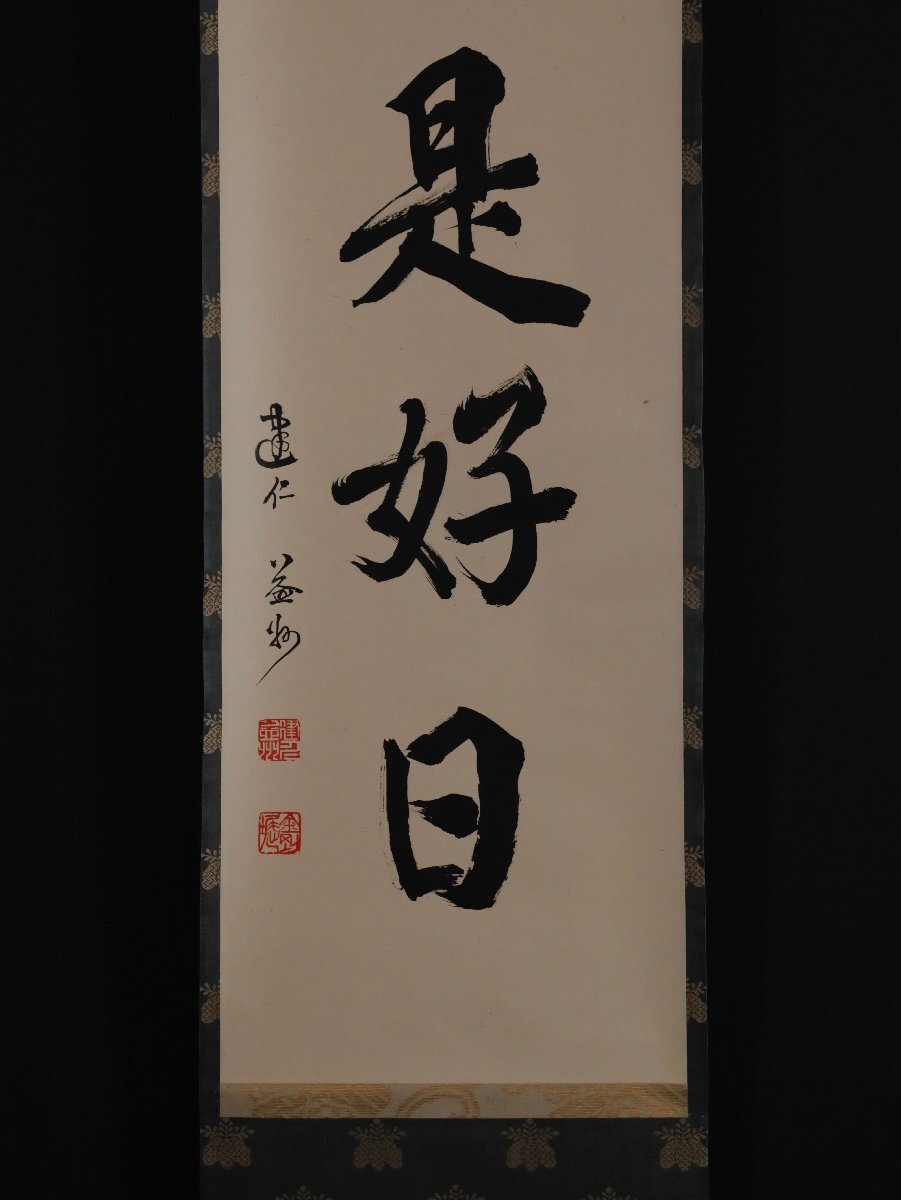 是好日
建仁 益州